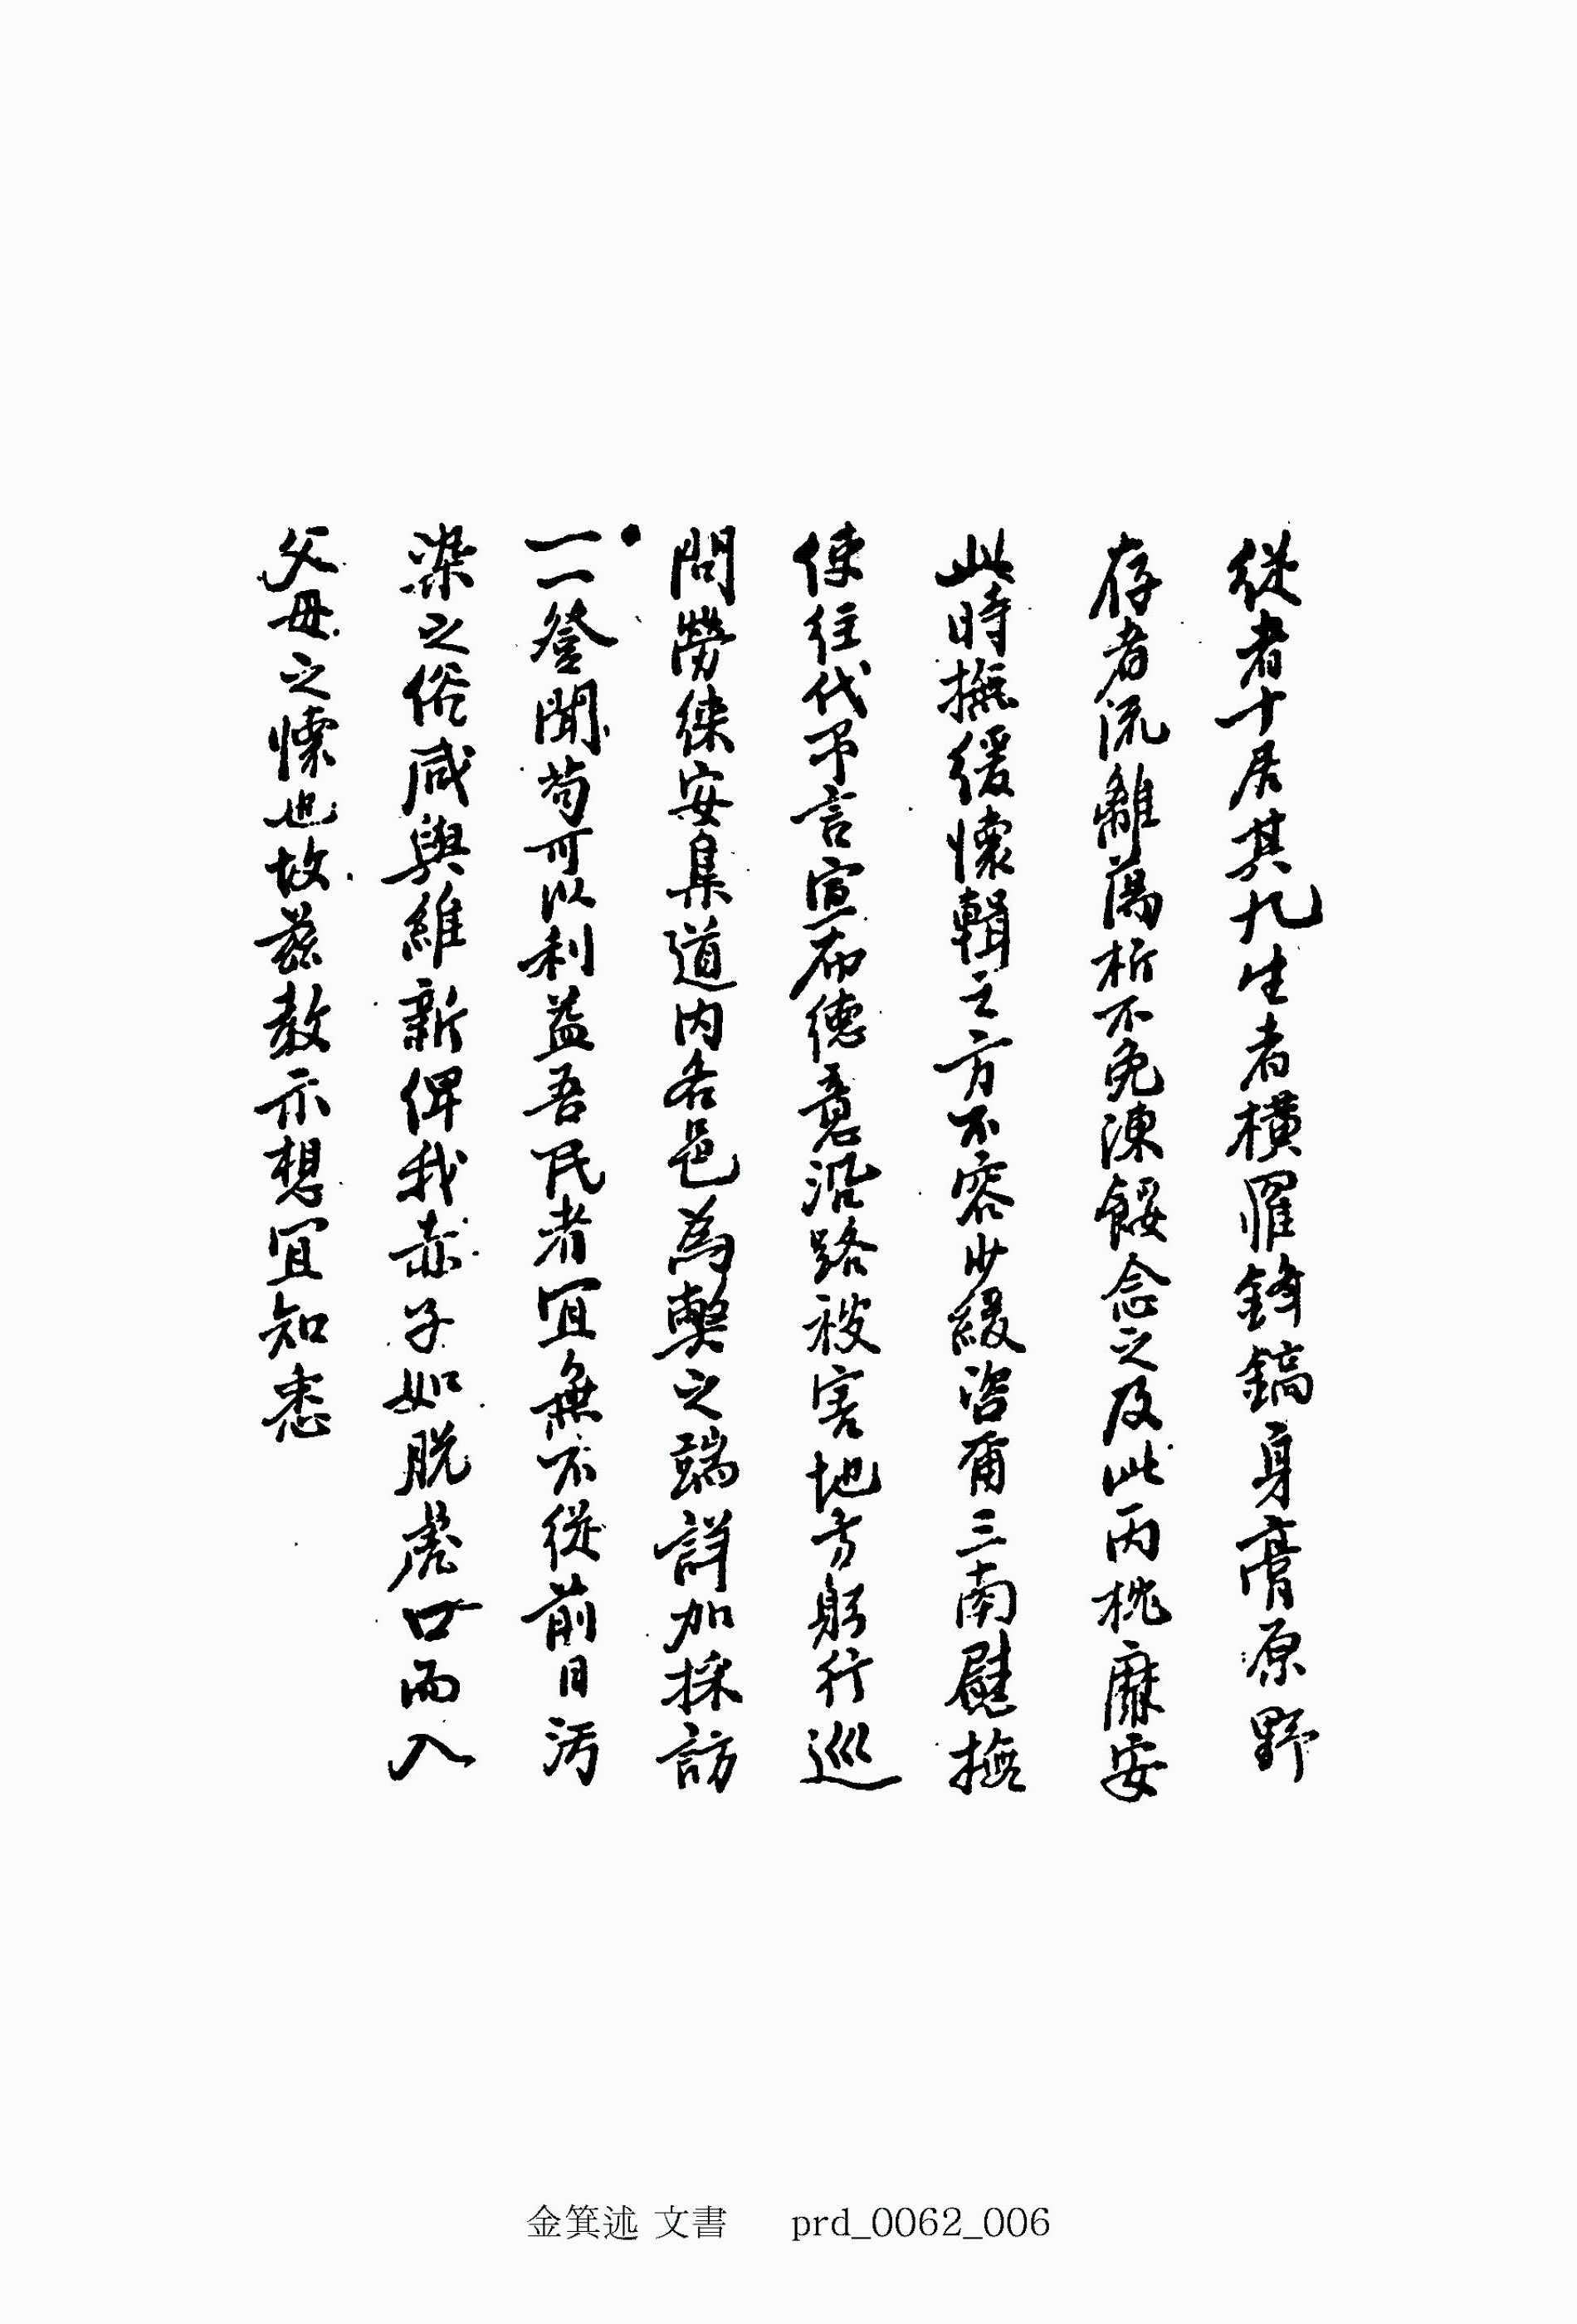 從者十居其九生者橫罹鋒鏑身膏原野
存者流離蕩析不免凍餒念之及此丙枕靡安
此時撫綏懷輯之方不容少緩咨爾三南慰撫
使往代予言宣布德意沿路被害地方躬行巡
問勞徠安集道内各邑為弊之端詳加採訪
一一登聞苟可以利益吾民者宜無不從前日汚
染之俗咸與維新俾我赤子如脫虎口而入
父母之懷也故玆敎示想宜知悉
金箕述 文書 prd_0062_006